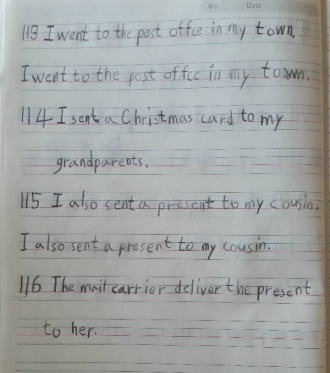 No Date
113 I went to the post offce in my town.
I went to the post offce in my town.
114 I sent a Christmas card to my
grandparents.
115 I also sent a present to my cousin.
I also sent a present to my cousin.
116 The mail carrier deliver the present
to her.